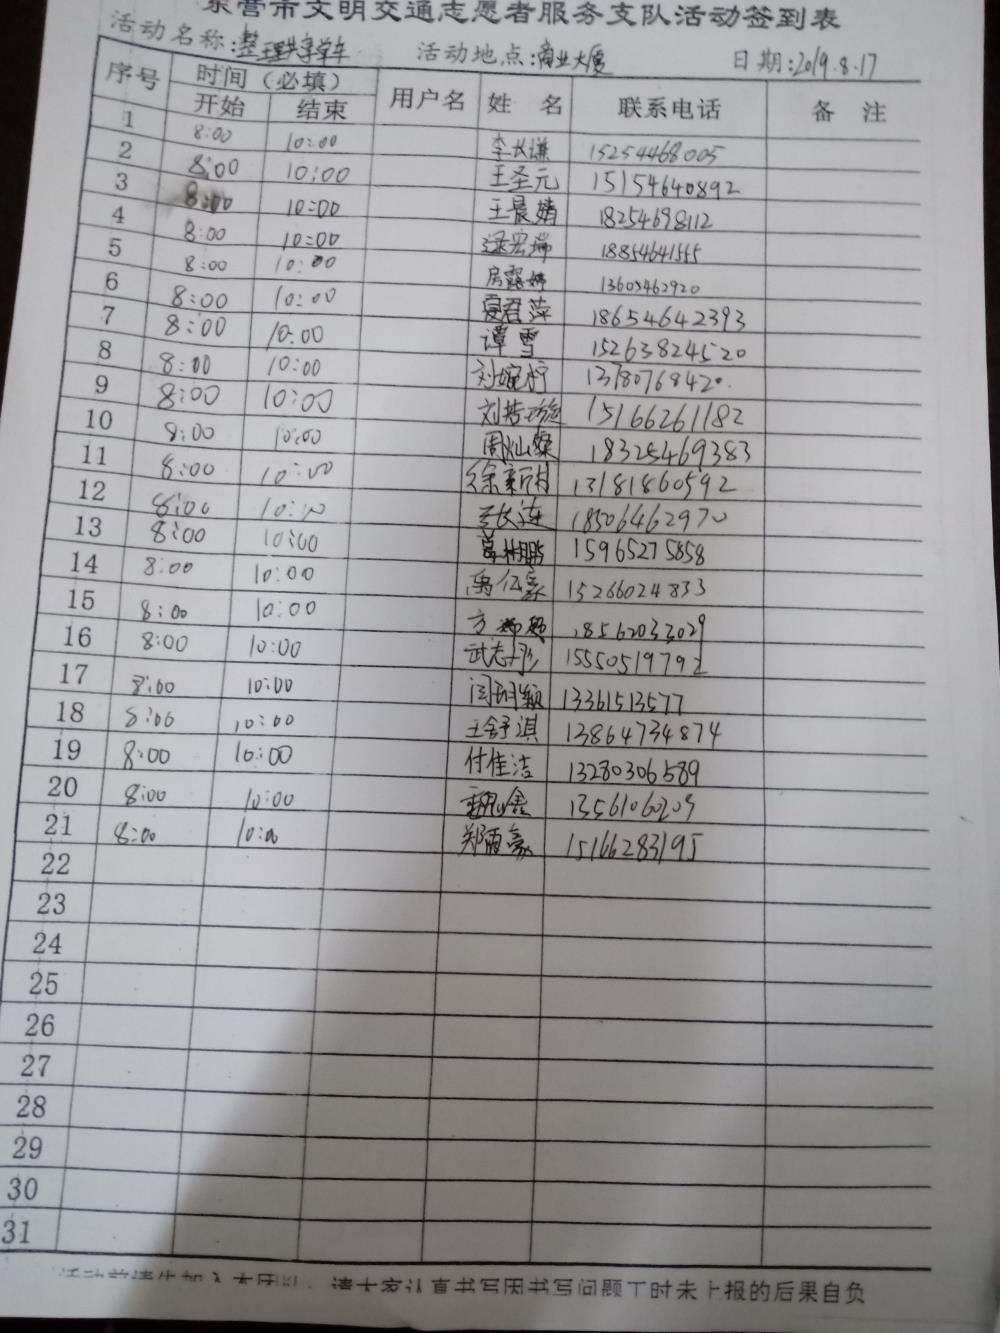 东营市文明交通志愿者服务支队活动签到表
活动名称:整理共享单车 活动地点:商业大厦 日期:2019.8.17
序号 时间（必填） 用户名 姓 名 联系电话 备 注
开始 结束
1 8:00 10:00 李长谦 15254468005
2 8:00 10:00 王圣元 15154640892
3 8:00 10:00 王晨婧 18254698112
4 8:00 10:00 逯宏瑞 18854641555
5 8:00 10:00 房露婷 13605462920
6 8:00 10:00 夏君萍 18654642393
7 8:00 10:00 谭雪 15263824520
8 8:00 10:00 刘婉柠 13780768420.
9 8:00 10:00 刘哲璇 15166261182
10 8:00 10:00 周灿燦 18325469383
11 8:00 10:00 徐新村 13181860592
12 8:00 10:00 长连 18506462970
13 8:00 10:00 15965275858
14 8:00 10:00 禹亿豪 15266024833
15 8:00 10:00 方 18562033029
16 8:00 10:00 武志彤 15550519792
17 8:00 10:00 闫玥颖 13361513577
18 8:00 10:00 王舒淇 13864734874
19 8:00 10:00 付佳洁 13280306589
20 8:00 10:00 13561060209
21 8:00 10:00 郑雨豪 15166283195
22
23
24
25
26
27
28
29
30
31
活动前请先加入本团队，请大家认真书写因书写问题工时未上报的后果自负